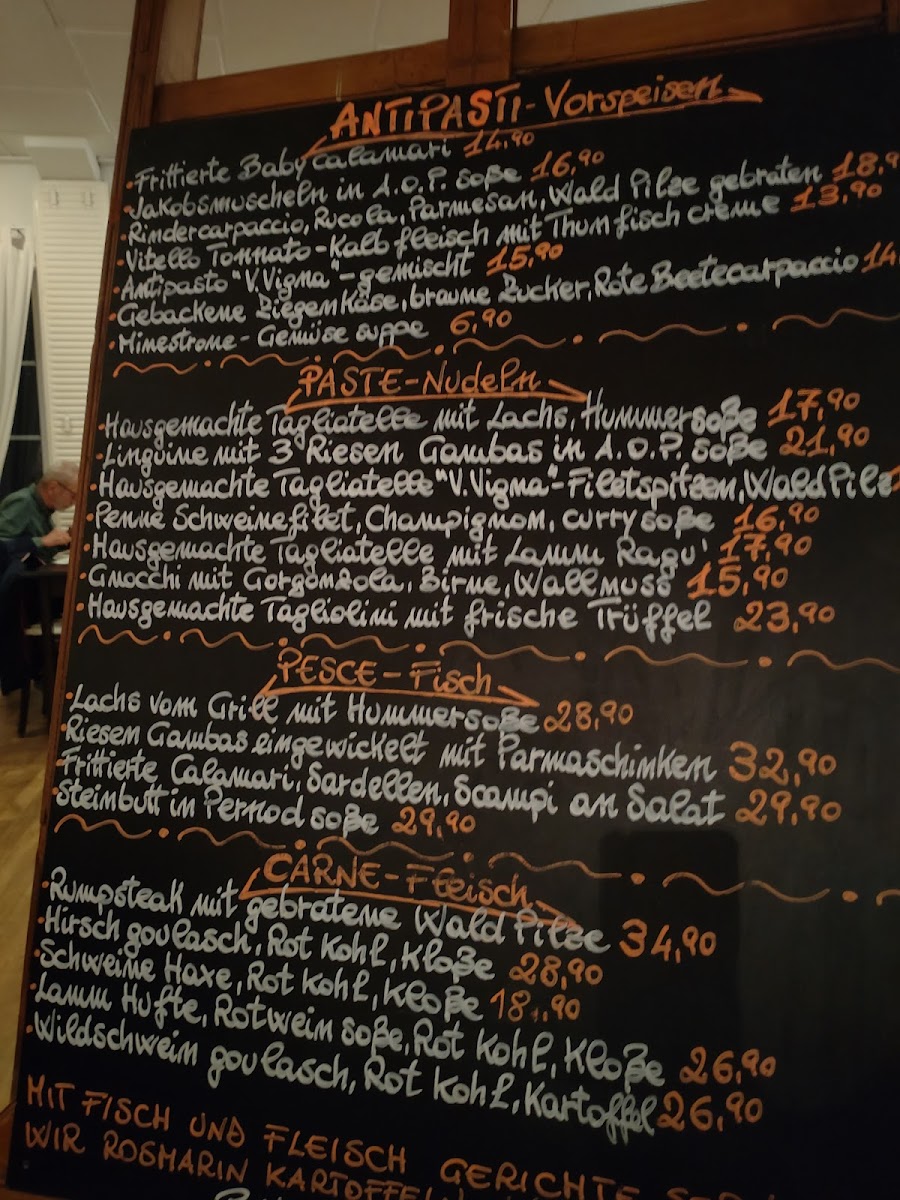 ANTIPASTI-Vorspeisen
•Frittierte Baby calamari 14,90
•Jakobsmuscheln in A.O.P. soße 16,90
•Rindercarpaccio, Rucola, Parmesan, Wald Pilze gebraten 18,9
•Vitello Tonnato-Kalbfleisch mit Thunfisch creme 13,90
•Antipasto "V.Vigna"-gemischt 15,90
•Gebackene Ziegenkäse, braune Zucker, Rote Beetecarpaccio 14
•Minestrone-Gemüse suppe 6,90
PASTE-Nudeln
•Hausgemachte Tagliatelle mit Lachs, Hummersoße 17,90
•Linguine mit 3 Riesen Gambas in A.O.P. soße 21,90
•Hausgemachte Tagliatelle "V.Vigna"-Filetspitzen, Wald Pilz
•Penne Schweinefilet, Champignon, curry soße 16,90
•Hausgemachte Tagliatelle mit Lamm Ragu' 17,90
•Gnocchi mit Gorgonzola, Birne, Wallnuss 15,90
•Hausgemachte Tagliolini mit frische Trüffel 23,90
PESCE-Fisch
•Lachs vom Grill mit Hummersoße 28,90
•Riesen Gambas eingewickelt mit Parmaschinken 32,90
•Frittierte Calamari, Sardellen, Scampi an Salat 29,90
•Steinbutt in Pernod soße 29,90
CARNE-Fleisch
•Rumpsteak mit gebratene Wald Pilze 34,90
•Hirsch goulasch, Rot Kohl, Kloße 28,90
•Schweine Haxe, Rot Kohl, Kloße 18,90
•Lamm Hüfte, Rotwein soße, Rot Kohl, Kloße 26,90
•Wildschwein goulasch, Rot Kohl, Kartoffel 26,90
MIT FISCH UND FLEISCH GERICHTE
WIR ROSMARIN KARTOFFELN